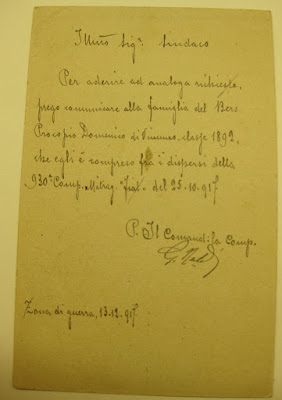 Illmo Sigr. Sindaco
Per aderire ad analoga richiesta,
prego comunicare alla famiglia del Bers
Procopio Domenico di classe 1892,
che egli è compreso fra i dispersi della
930a Comp. Mitrag. "Fiat" del 25-10-917
P. Il Comand. la Comp.
Zona di guerra, 13-12-917